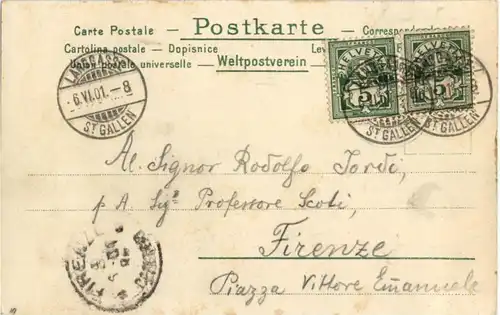 Carte Postale - Postkarte - Correspondenzkarte
Cartolina postale - Dopisnice Lev
Union postale universelle - Weltpostverein
FRANCO FRANCO
HELVETIA HELVETIA
5 5
LANGGASSE
6.VI.01.-8
ST GALLEN
ST GALLEN ST GALLEN
Al. Signor Rodolfo Tordi,
p A. Sigr Professore Scoti,
Firenze
FIRENZE
Piazza Vittore Emanuele